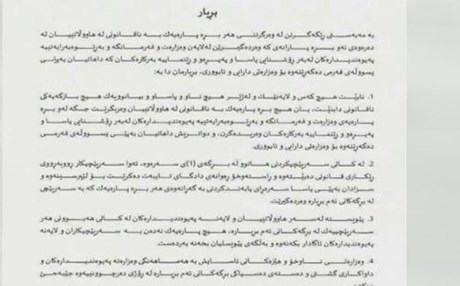 بڕیار
بە مەبەستی ڕێگەگرتن لە وەرگرتنی هەر بڕە پارەیەک بە ناقانونی لە هاووڵاتییان لە
دەرەوەی ئەو بڕە پارانەی کە وەردەگیرێن لەلایەن وەزارەت و فەرمانگە و بەڕێوەبەرایەتییە
پەیوەندیدارەکان لەبەر ڕۆشنایی یاسا و پەیڕەو و ڕێنماییە بەرکارەکان کە داهاتیان بەپێی
پسووڵەی فەرمی دەگەڕێتەوە بۆ وەزارەتی دارایی و ئابووری، بڕیارمان دا بە:
1. نابێت هیچ کەس و لایەنێک و لەژێر هیچ ناو و پاساو و بیانوویەک هیچ بازگەیەکی
ناقانونی دابنێت، یان هیچ بڕە پارەیەک بە ناقانونی لە هاووڵاتییان وەربگرێت جگە لەو بڕە
پارەیەی کە وەزارەت و فەرمانگە و بەڕێوەبەرایەتییە پەیوەندیدارەکان لەبەر ڕۆشنایی یاسا و
پەیڕەو و ڕێنماییە بەرکارەکان وەریدەگرن، و دواتریش داهاتیان بەپێی پسووڵەی فەرمی
دەگەڕێتەوە بۆ وەزارەتی دارایی و ئابووری.
2. لە کاتی سەرپێچیکردنی هاتوو لە بڕگەی (1)ی سەرەوە، ئەوا سەرپێچیکار ڕووبەڕووی
ڕێکاری قانونی دەبێتەوە و ڕاستەوخۆ ڕەوانەی دادگای تایبەت دەکرێت بۆ لێپرسینەوە و
سزادان بەپێی یاسا سەرەڕای پابەندکردنی بە گەڕانەوەی هەر بڕە پارەیەک کە بە سەرپێچی
لە بڕگەکانی ئەم بڕیارە وەریگرتووە.
3. پێویستە لەسەر هاووڵاتییان و لایەنە پەیوەندیدارەکان لە کاتی هەبوونی هەر
سەرپێچییەک لە بڕگەکانی ئەم بڕیارە، هیچ بڕە پارەیەک نەدەن بە سەرپێچیکاران و لایەنە
پەیوەندیدارەکان ئاگادار بکەنەوە و بەڵگەی پێویستیان بخەنە بەردەست.
4. وەزارەتی ناوخۆ و هێزەکانی ئاسایش بە هەماهەنگی وەزارەتە پەیوەندیدارەکان و
داواکاری گشتی و دەستەی دەسپاکی بڕگەکانی ئەم بڕیارە لە ڕۆژی دەرچوونییەوە جێبەجێ